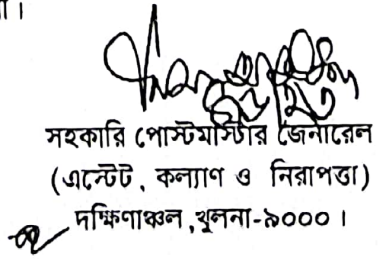 ।
সহকারি পোস্টমাস্টার জেনারেল
(এস্টেট, কল্যাণ ও নিরাপত্তা)
দক্ষিণাঞ্চল,খুলনা-৯০০০।